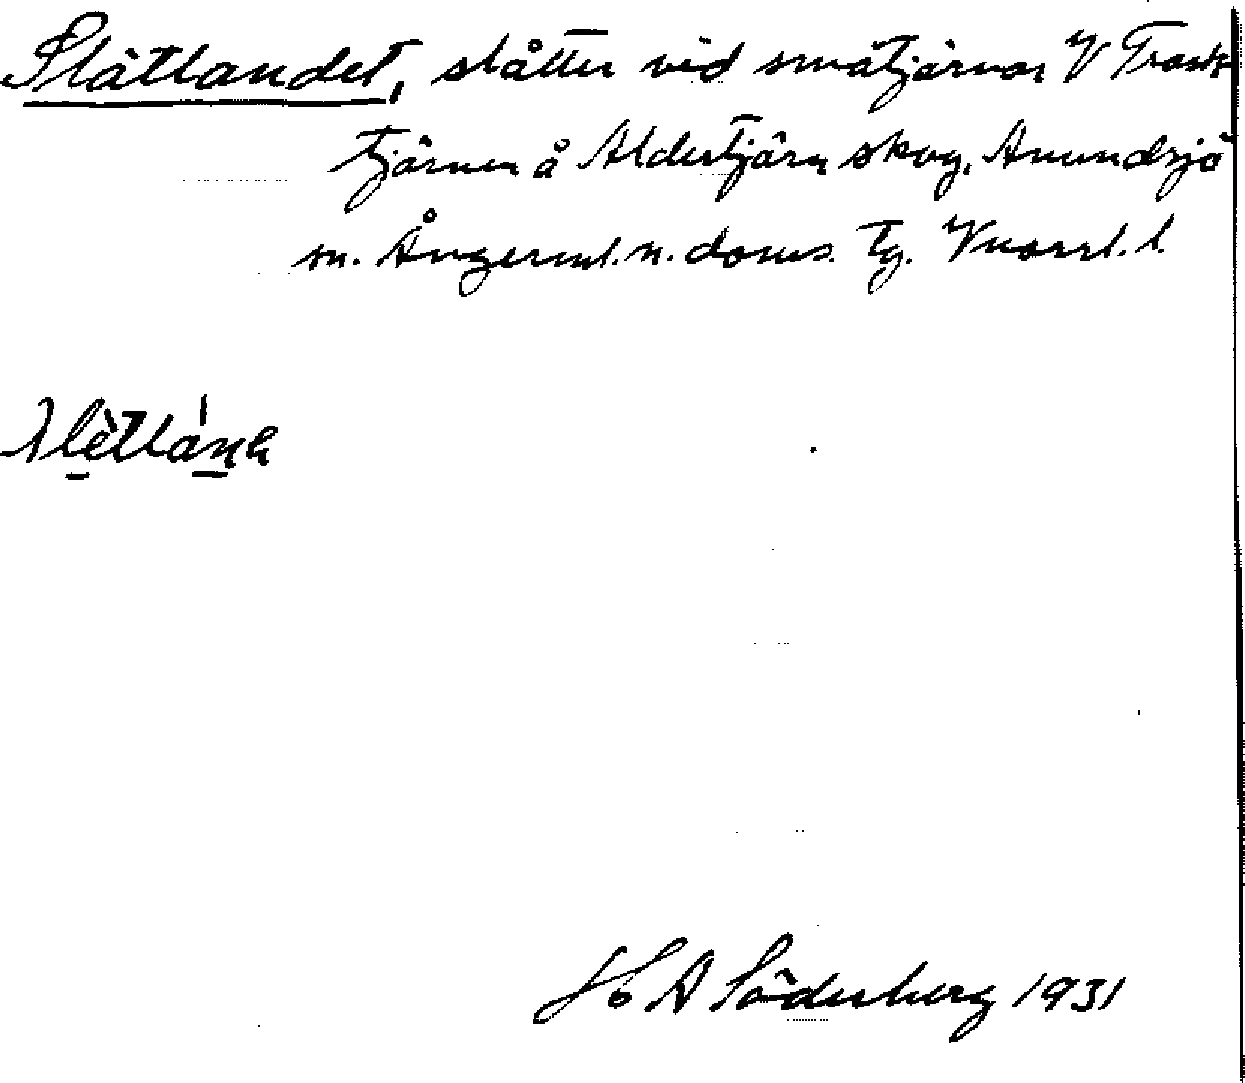 Slåtlandet, slåtter vid småtjärnar V Trank
tjärnen å Aldertjärn skog, Anundsjö
sn. Ångerml. n. doms. Tg. Vnorrl. l.
H A Söderberg 1931